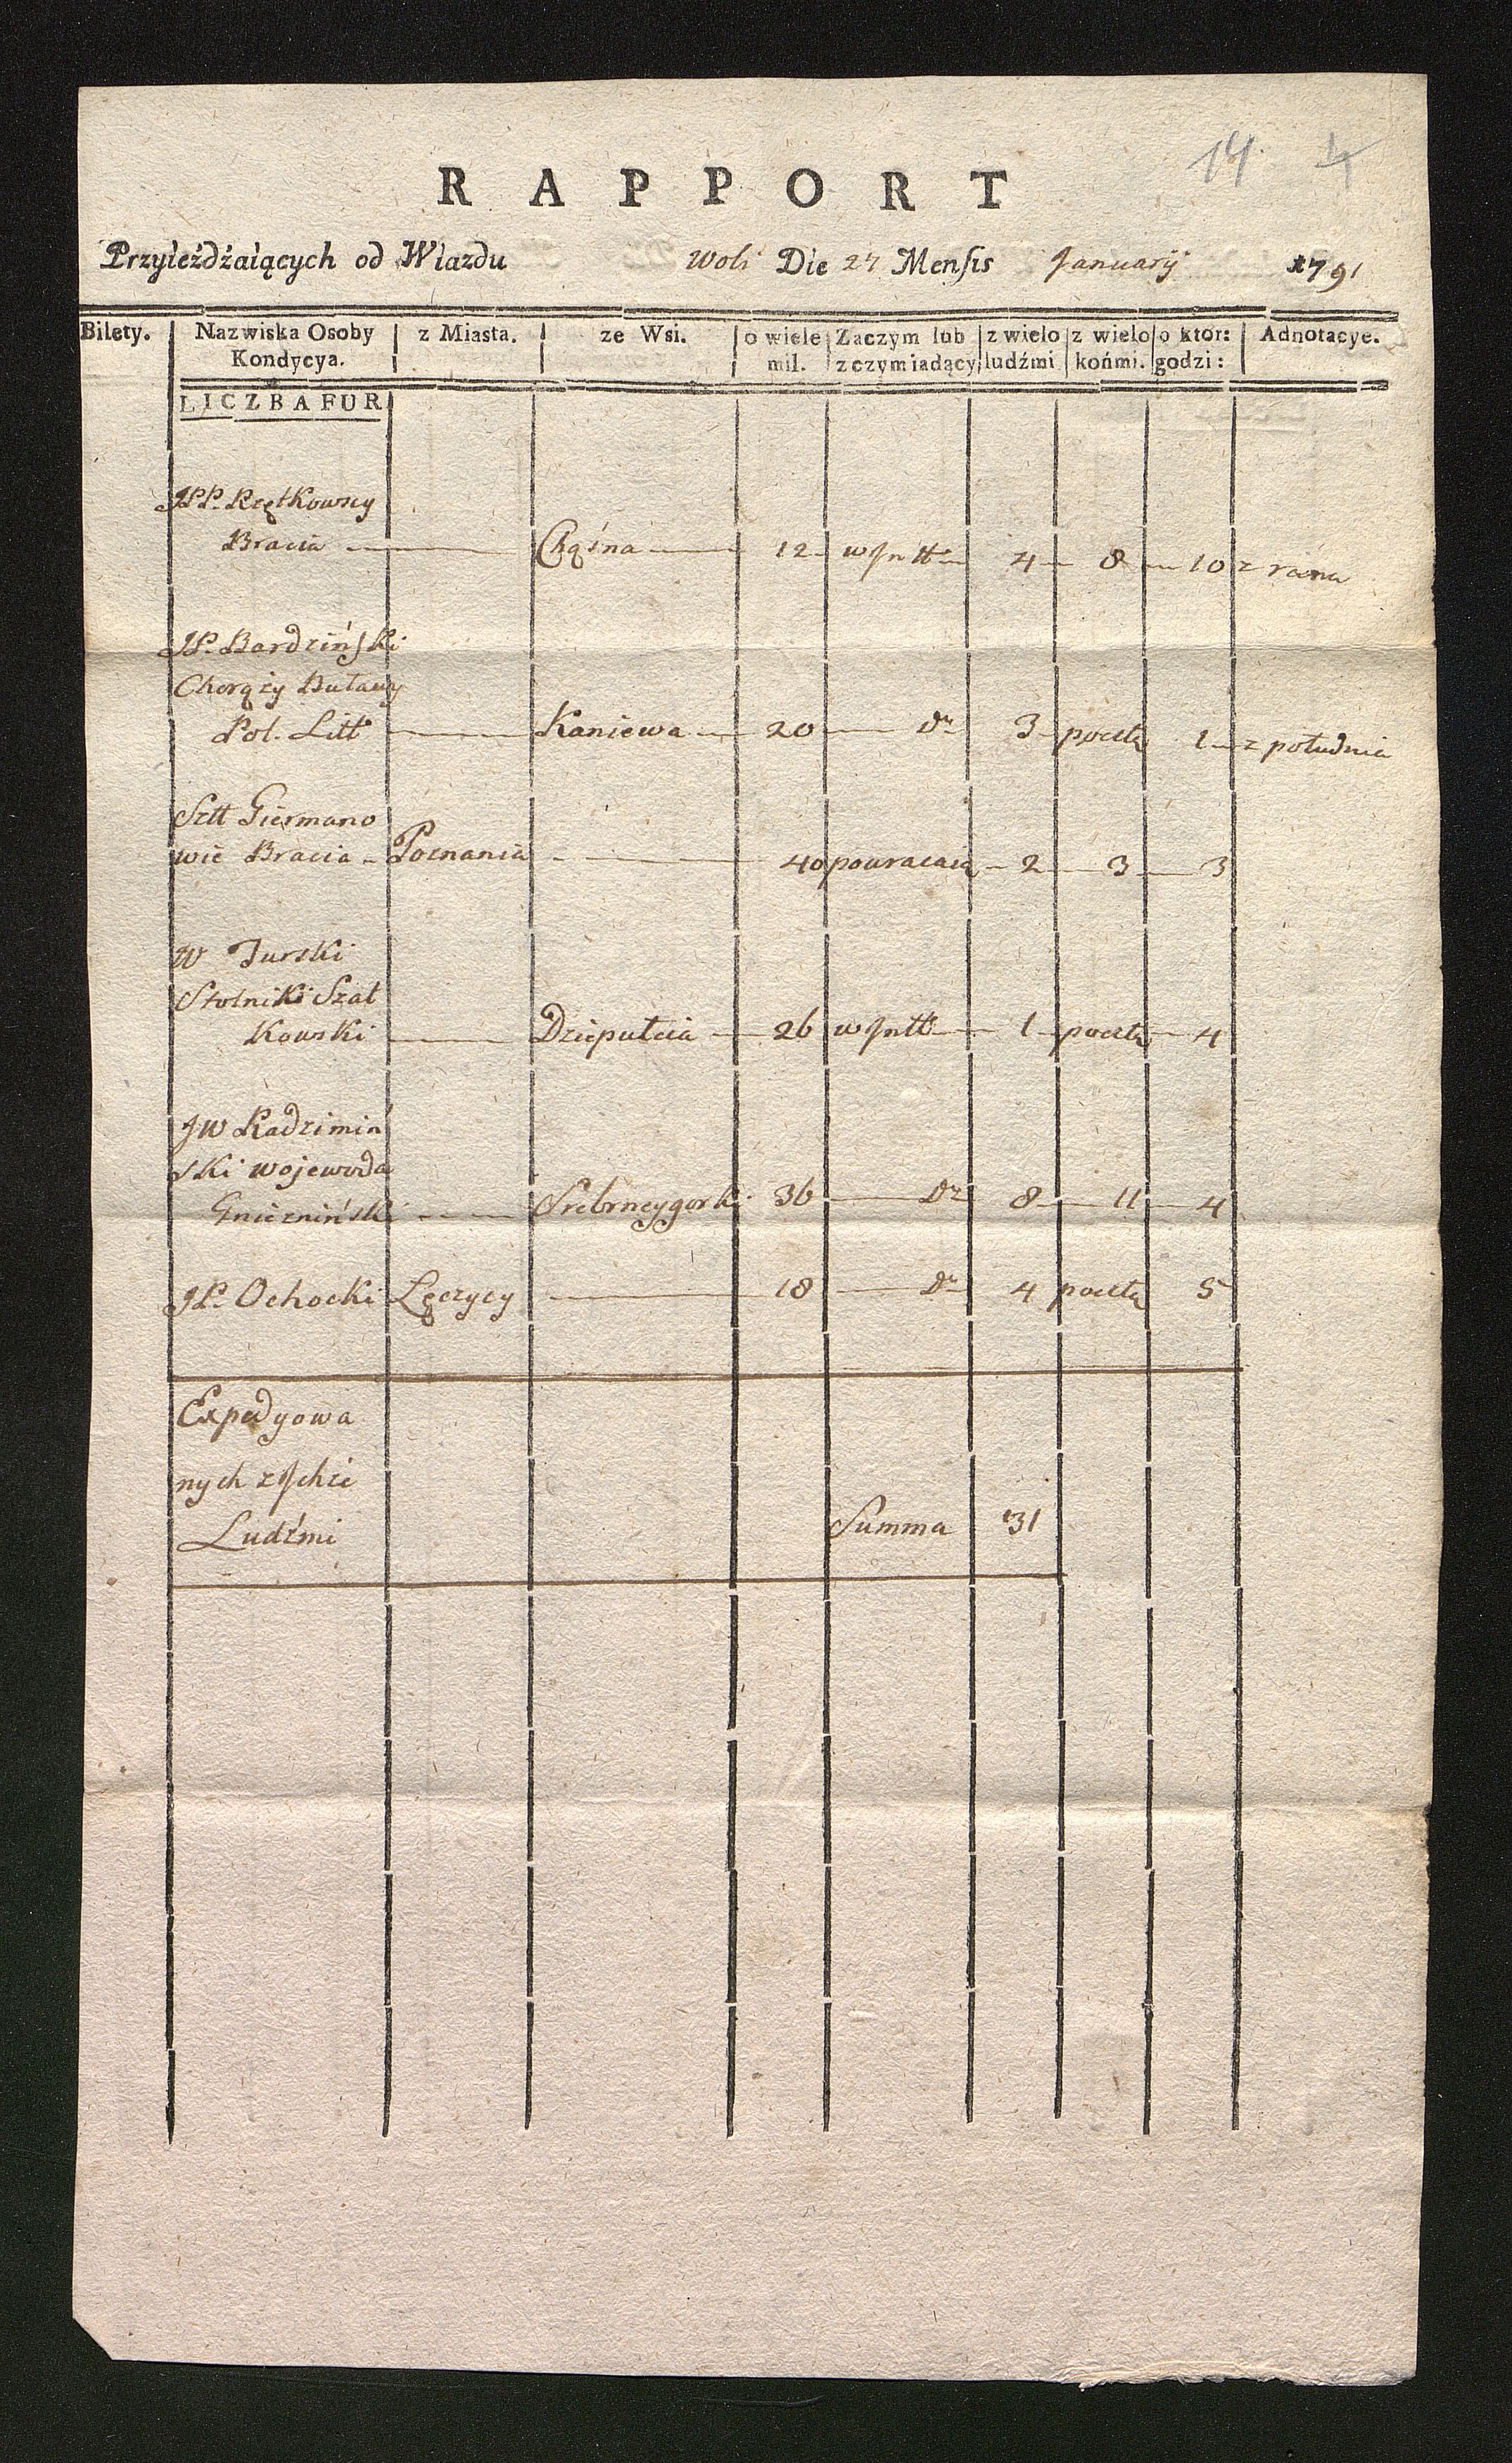 14. 4
RAPPORT
Przyieźdźaiących od Wiazdu Woli Die 27 Mensis January 1791
Bilety. | Nazwiska Osoby Kondycya. | z Miasta. | ze Wsi. | o wiele mil. | Zaczym lub z czym iadący | z wielo ludźmi | z wielo końmi. | o ktor: godzi: | Adnotacye.
LICZBA FUR
JPP. Rzętkowscy
Bracia — Chąśna — 12 — w Jntt — 4 — 8 — 10 z rana
JP. Bardziński
Chorąży Buławy
Pol. Litt — Kaniewa — 20 — do 3 pocztą 1 — z południa
Sztt Giermano
wie Bracia — Poznania — 40 powracaią — 2 — 3 — 3
W Turski
Stolnik Szat
kowski — Dzieputcia — 26 w Jntt — 1 — pocztą — 4
JW Radzimiń
ski wojewoda
Gnieźniński — Srebrneygorki 36 — do 8 — 11 — 4
JP. Ochocki Łęczycy — 18 — do 4 pocztą 5
Expedyowa
nych z Jchże
Ludźmi Summa 31